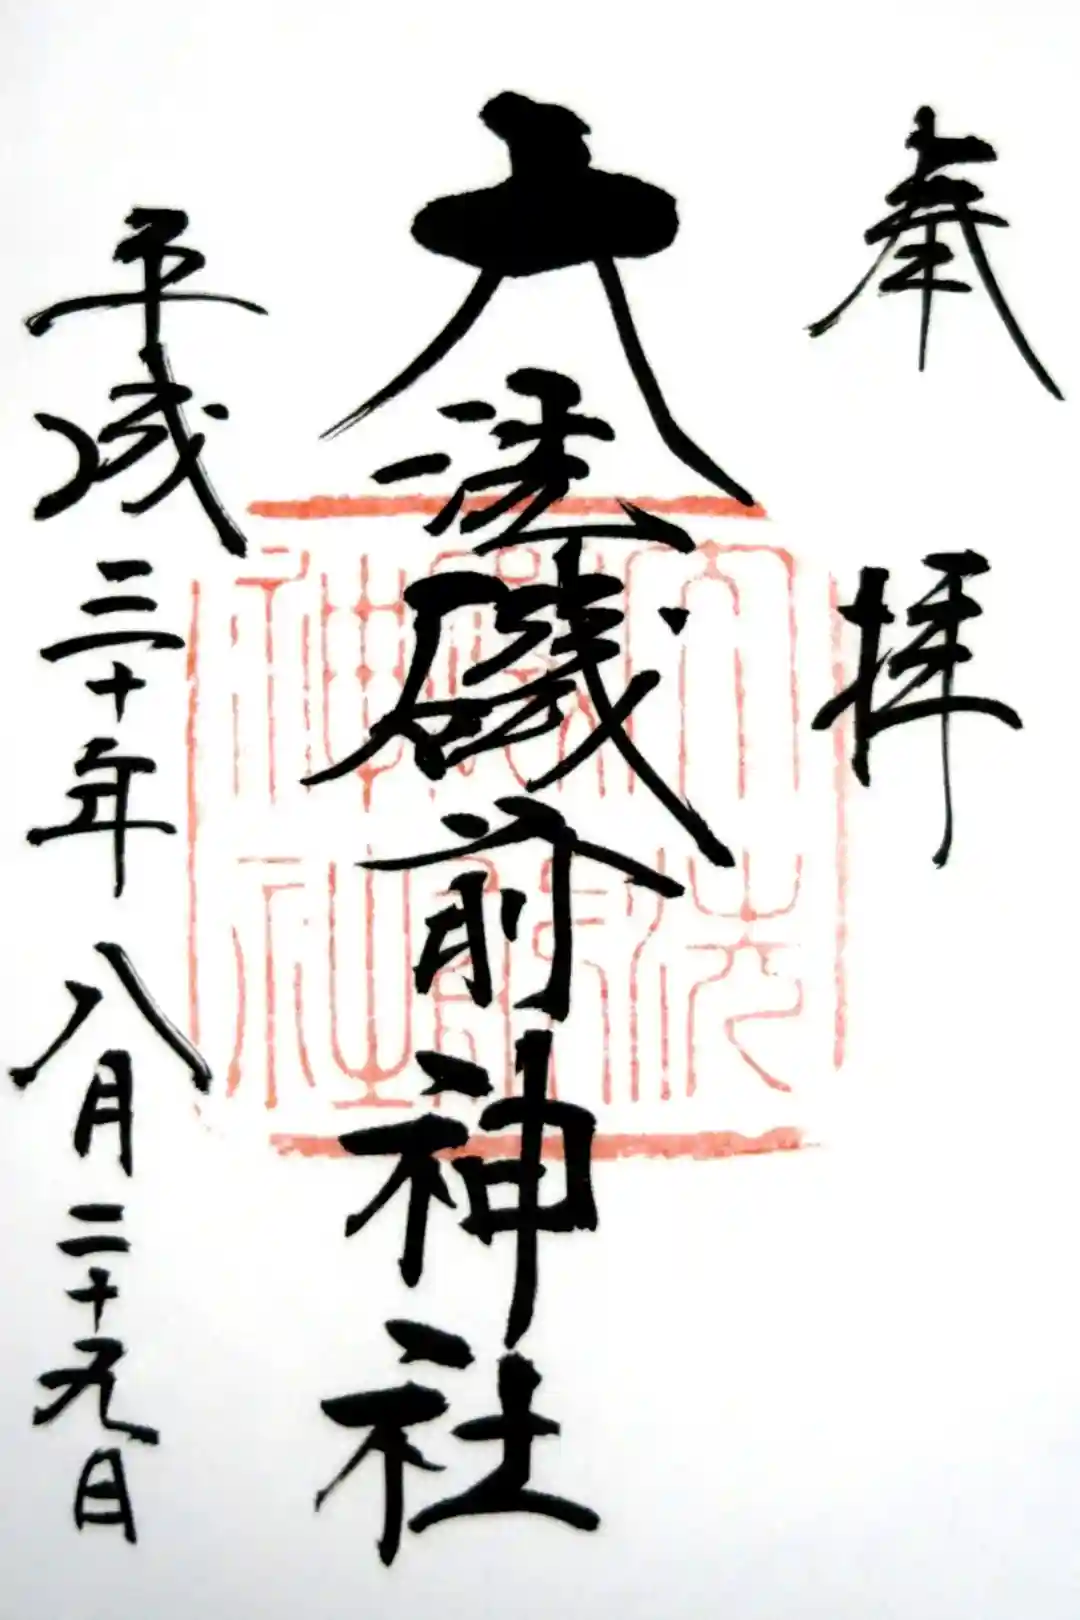 奉拝
大洗磯前神社
平成三十年八月二十九日
大洗
磯前
神社